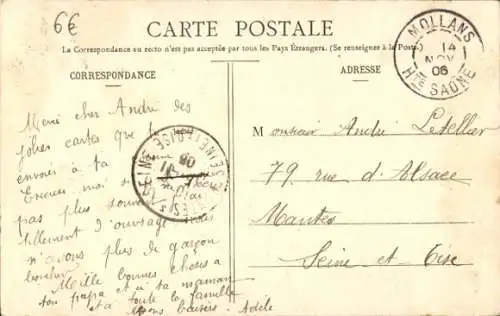 6€
CARTE POSTALE
La Correspondance au recto n'est pas acceptée par tous les Pays Étrangers. (Se renseigner à la Poste)
CORRESPONDANCE
ADRESSE
MOLLANS
14
NOV
06
Hte SAÔNE
Merci cher André des
jolies cartes que tu
envoies à ta
Excuse moi si
pas plus souvent
tellement d'ouvrage
n'avons plus de garçon
boucher
Mille bonnes choses à
ton papa et à ta maman
et à toute la famille
bons baisers. Adèle
SEINE-ET-OISE
Monsieur André Letellier
79 rue d'Alsace
Mantes
Seine et Oise